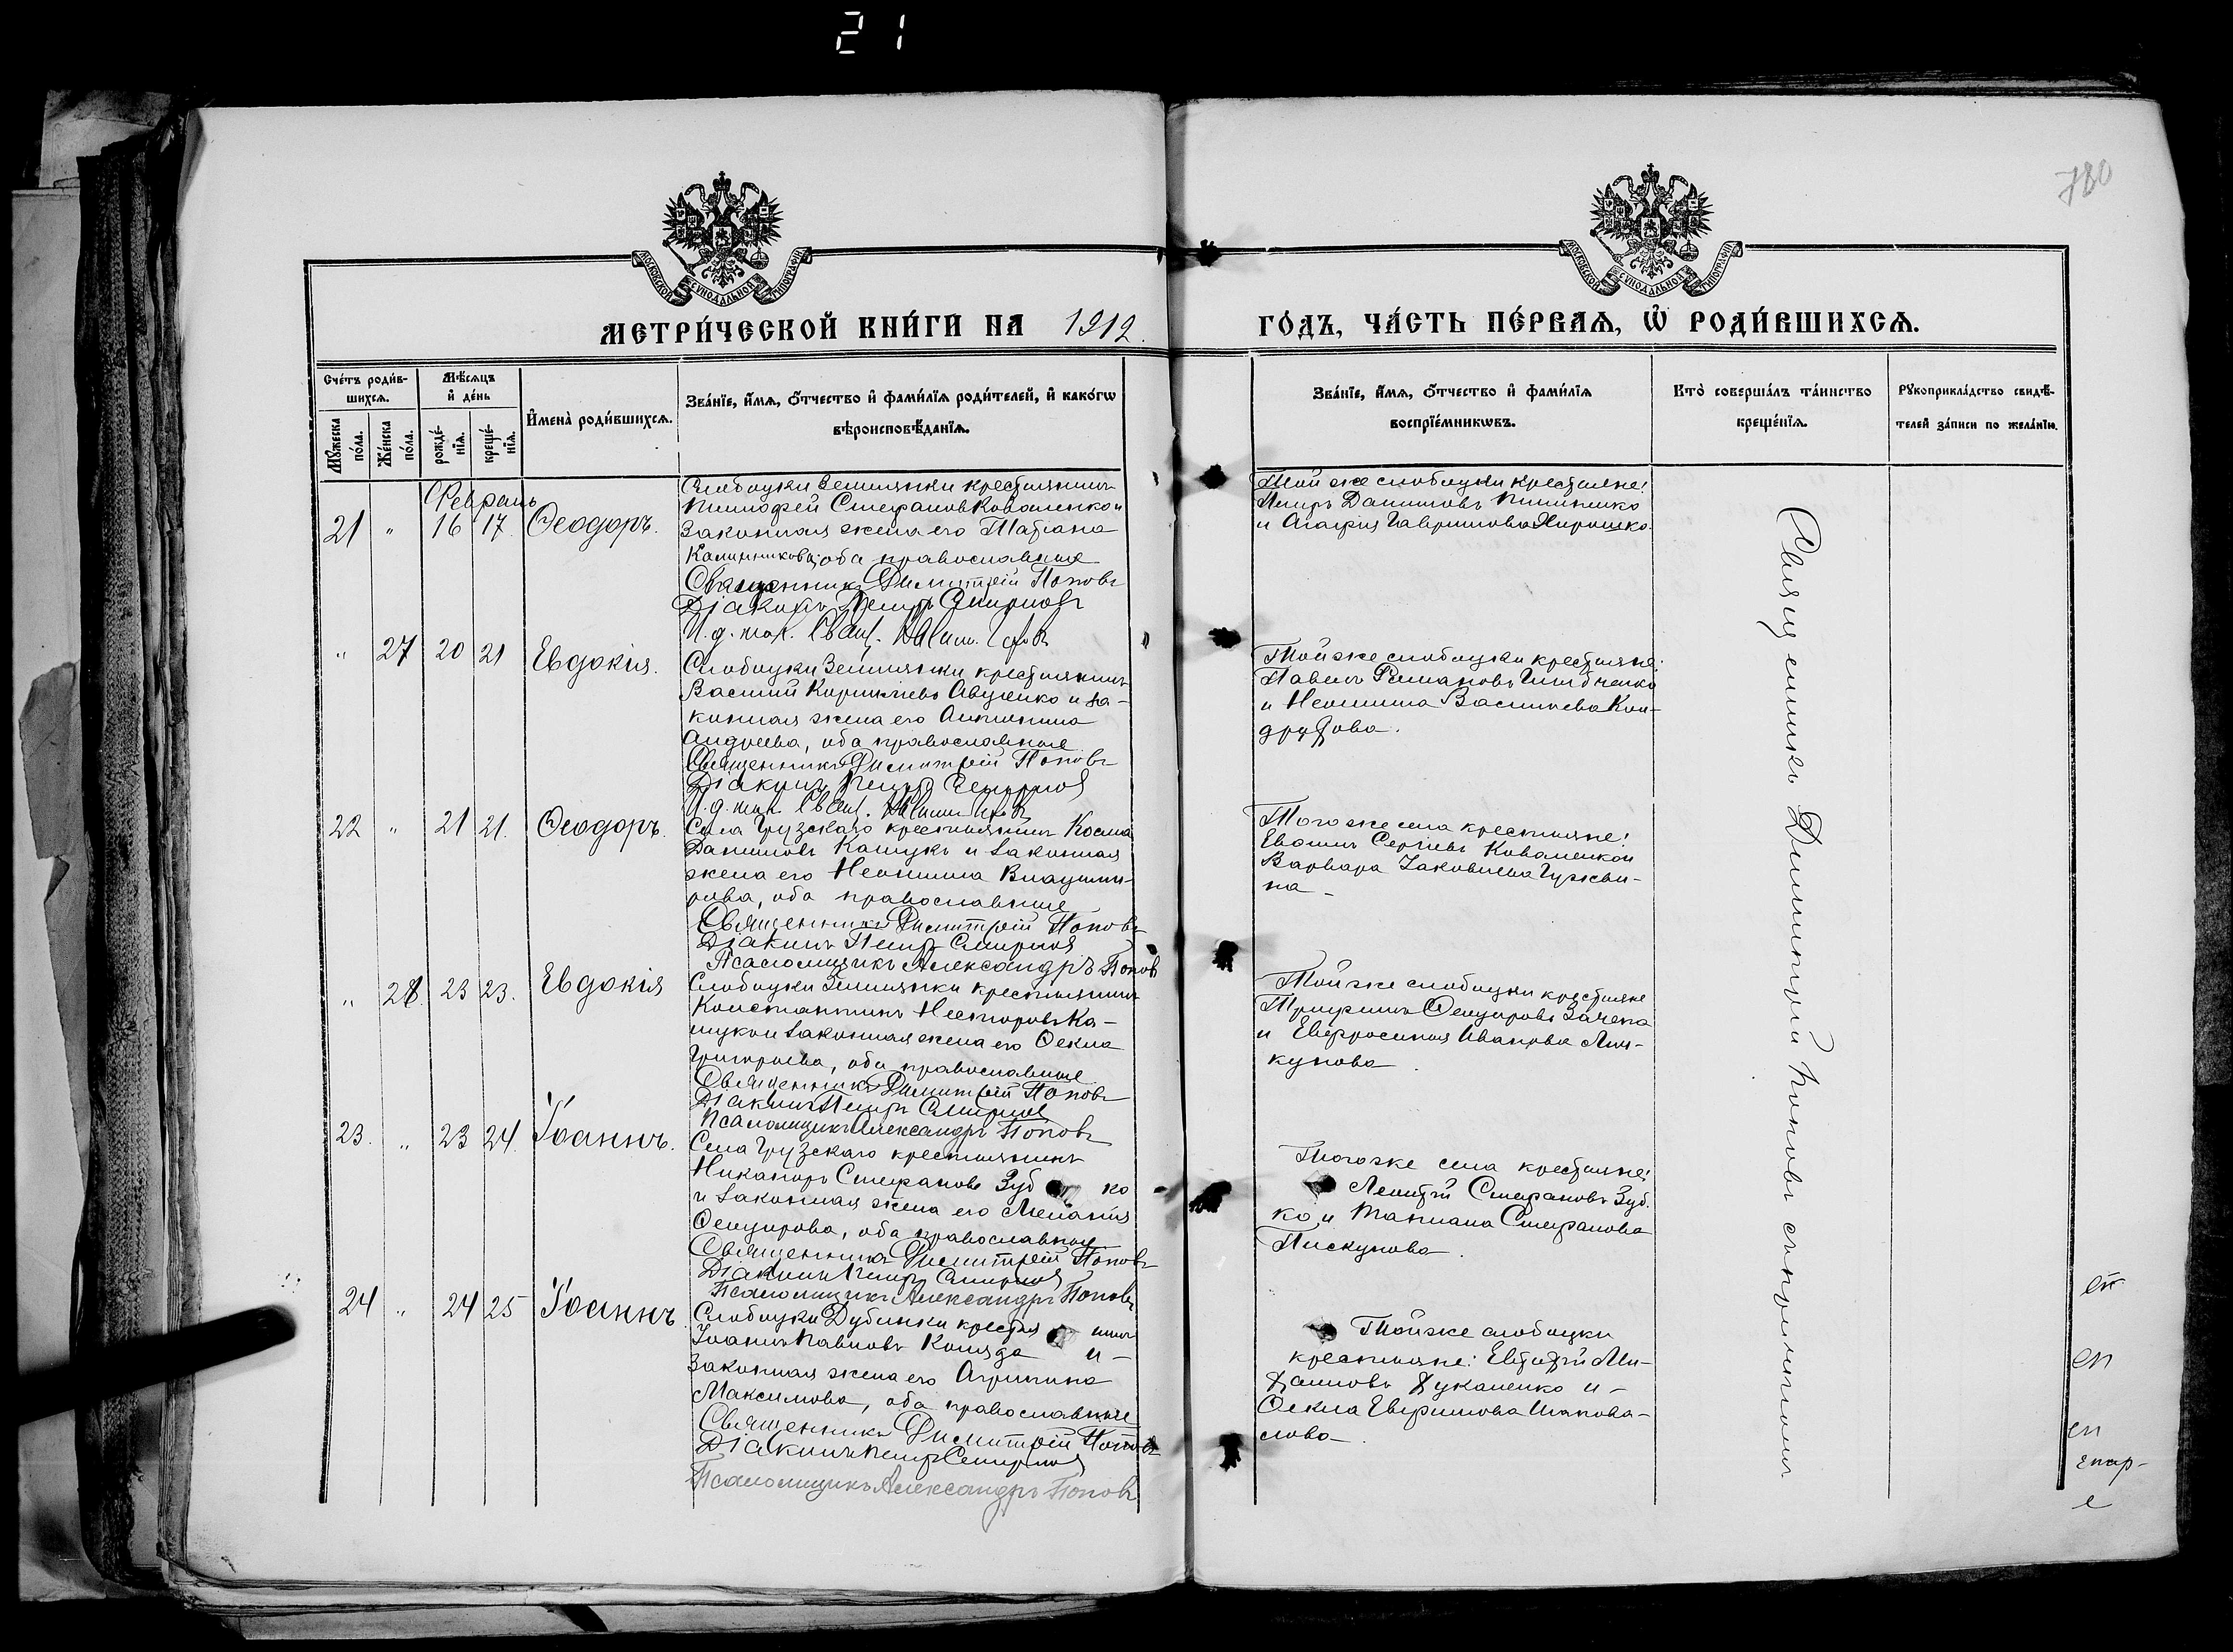 21
780
МОСКОВСКОЙ СУНОДАЛЬНОЙ ТИПОГРАФІИ
МОСКОВСКОЙ СУНОДАЛЬНОЙ ТИПОГРАФІИ
МЕТРИ́ЧЕСКОЙ КНИ́ГИ НА 1912.
ГО́ДЪ, ЧА́СТЬ ПЕ́РВАѦ, Ѡ҆ РОДИ́ВШИХСѦ.
Сче́тъ роди́в-
шихсѧ.
Мꙋ́жеска по́ла.
Же́нска по́ла.
Мѣ́сѧцъ и҆ де́нь
рожде́-
нїѧ.
креще́-
нїѧ.
И҆мена̀ роди́вшихсѧ.
Зва́нїе, и҆́мѧ, ѻ҆́тчество и҆ фами́лїѧ роди́телей, и҆ како́гѡ
вѣроисповѣ́данїѧ.
Зва́нїе, и҆́мѧ, ѻ҆́тчество и҆ фами́лїѧ
воспрїе́мникѡвъ.
Кто̀ соверша́лъ та́инство
креще́нїѧ.
Рꙋкоприкла́дство свидѣ́-
телей за́писи по жела́нїю.
Февраль
21 " 16 17. Ѳеодоръ.
Слободки Землянки крестьянинъ
Тимофей Стефановъ Коваленко и
законная жена его Татіана
Калинникова; оба православные
Священникъ Димитрій Поповъ
Діаконъ Петръ Смирновъ
Той же слободки крестьяне:
Петръ Даниловъ
и Агафія Гаврилова
" 27 20 21 Евдокія.
Слободки Землянки крестьянинъ
Василій Кириллевъ Авдѣенко и за-
конная жена его Антонина
Андреева, оба православные
Священникъ Димитрій Поповъ
Діаконъ Петръ Смирновъ
Той же слободки крестьяне:
Павелъ Романовъ
и Неонила Васильева Кон-
дратова.
22 " 21 21. Ѳеодоръ.
Села Грузскаго крестьянинъ Косма
Даниловъ Кащукъ и законная
жена его Неонила Владими-
рова, оба православные
Священникъ Димитрій Поповъ
Діаконъ Петръ Смирновъ
Псаломщикъ Александръ Поповъ
Того же села крестьяне:
Сергіевъ Коваленко и
Варвара Іаковлева
на -
" 28. 23 23. Евдокія
Слободки Землянки крестьянинъ
Константинъ Несторовъ Ка-
щук и законная жена его Ѳекла
Григорьева, оба православные
Священникъ Димитрій Поповъ
Діаконъ Петръ Смирновъ
Псаломщикъ Александръ Поповъ
Той же слободки крестьяне
Трифонъ Ѳеодоровъ Зачепа
и Евфросинія Иванова
кунова.
23. " 23 24. Іоаннъ.
Села Грузскаго крестьянинъ
Никаноръ Стефановъ Зуб ко
и законная жена его Меланія
Ѳеодорова, оба православные
Священникъ Димитрій Поповъ
Діаконъ Петръ Смирновъ
Псаломщикъ Александръ Поповъ
Того же села крестьяне:
Леонтій Стефановъ Зуб-
ко, и Татіана Стефанова
Пискунова.
24 " 24 25 Іоаннъ
Слободки Дубинки крестья нинъ
Іоаннъ Павловъ Коляда и -
законная жена его Агрипина
Максимова, оба православные
Священникъ Димитрій Поповъ
Діаконъ Петръ Смирновъ
Псаломщикъ Александръ Поповъ
Той же слободки
крестьяне: Евтихій Ми-
хаиловъ Лукаленко и -
Ѳекла Ефимова Шапова-
лова
Священникъ Димитрій Поповъ съ причтомъ